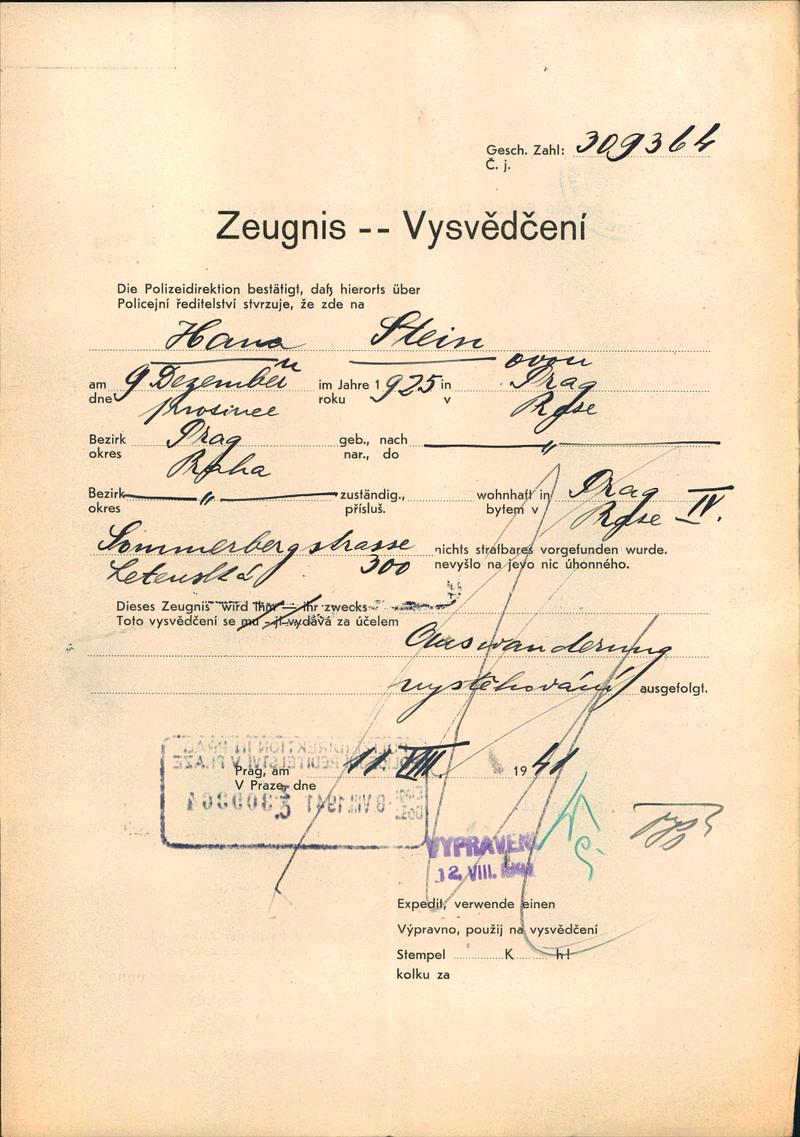 Gesch. Zahl: 309364
Č. j.
Zeugnis -- Vysvědčení
Die Polizeidirektion bestätigt, daß hierorts über
Policejní ředitelství stvrzuje, že zde na
Hana Stein
ovou
am 9 Dezember im Jahre 1925 in Prag
dne prosince roku v
Bezirk Prag geb., nach "
okres Praha nar., do
Bezirk " zuständig., wohnhaft in Prag IV.
okres přísluš. bytem v
Sommerbergstrasse nichts strafbares vorgefunden wurde.
Letenská 300 nevyšlo na jevo nic úhonného.
Dieses Zeugnis wird ihm — ihr zwecks
Toto vysvědčení se mu - jí vydává za účelem
Auswanderung
vystěhování ausgefolgt.
POLIZEIDIREKTION IN PRAG
POLICEJNÍ ŘEDITELSTVÍ V PRAZE
Prag, am 11 VIII 1941
V Praze, dne
Eing.
Došlo 8. VIII. 1941 Č. 309364
VYPRAVENO
12. VIII. 1941
Expedit, verwende einen
Výpravno, použij na vysvědčení
Stempel K h!
kolku za